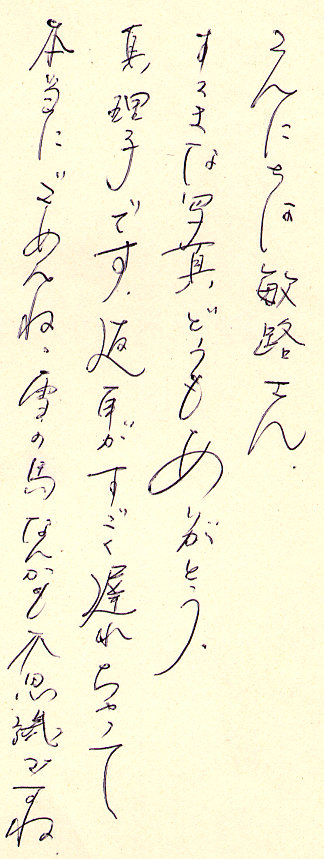 こんにちは敏路さん.
すてきな写真どうもありがとう.
真理子です.返事がすごく遅れちゃって
本当にごめんね、雪の馬なんかも不思議ですね